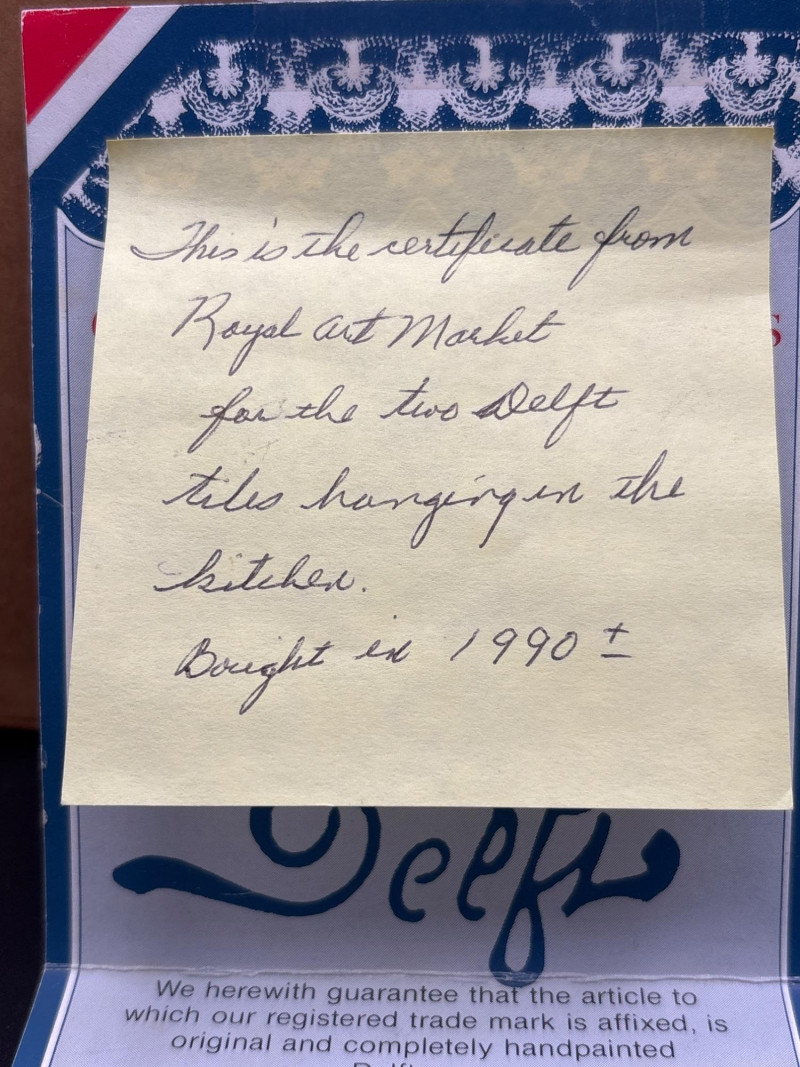 This is the certificate from
Royal Art Market
for the two Delft
tiles hanging in the
kitchen.
Bought in 1990 ±
S
Delft
We herewith guarantee that the article to
which our registered trade mark is affixed, is
original and completely handpainted